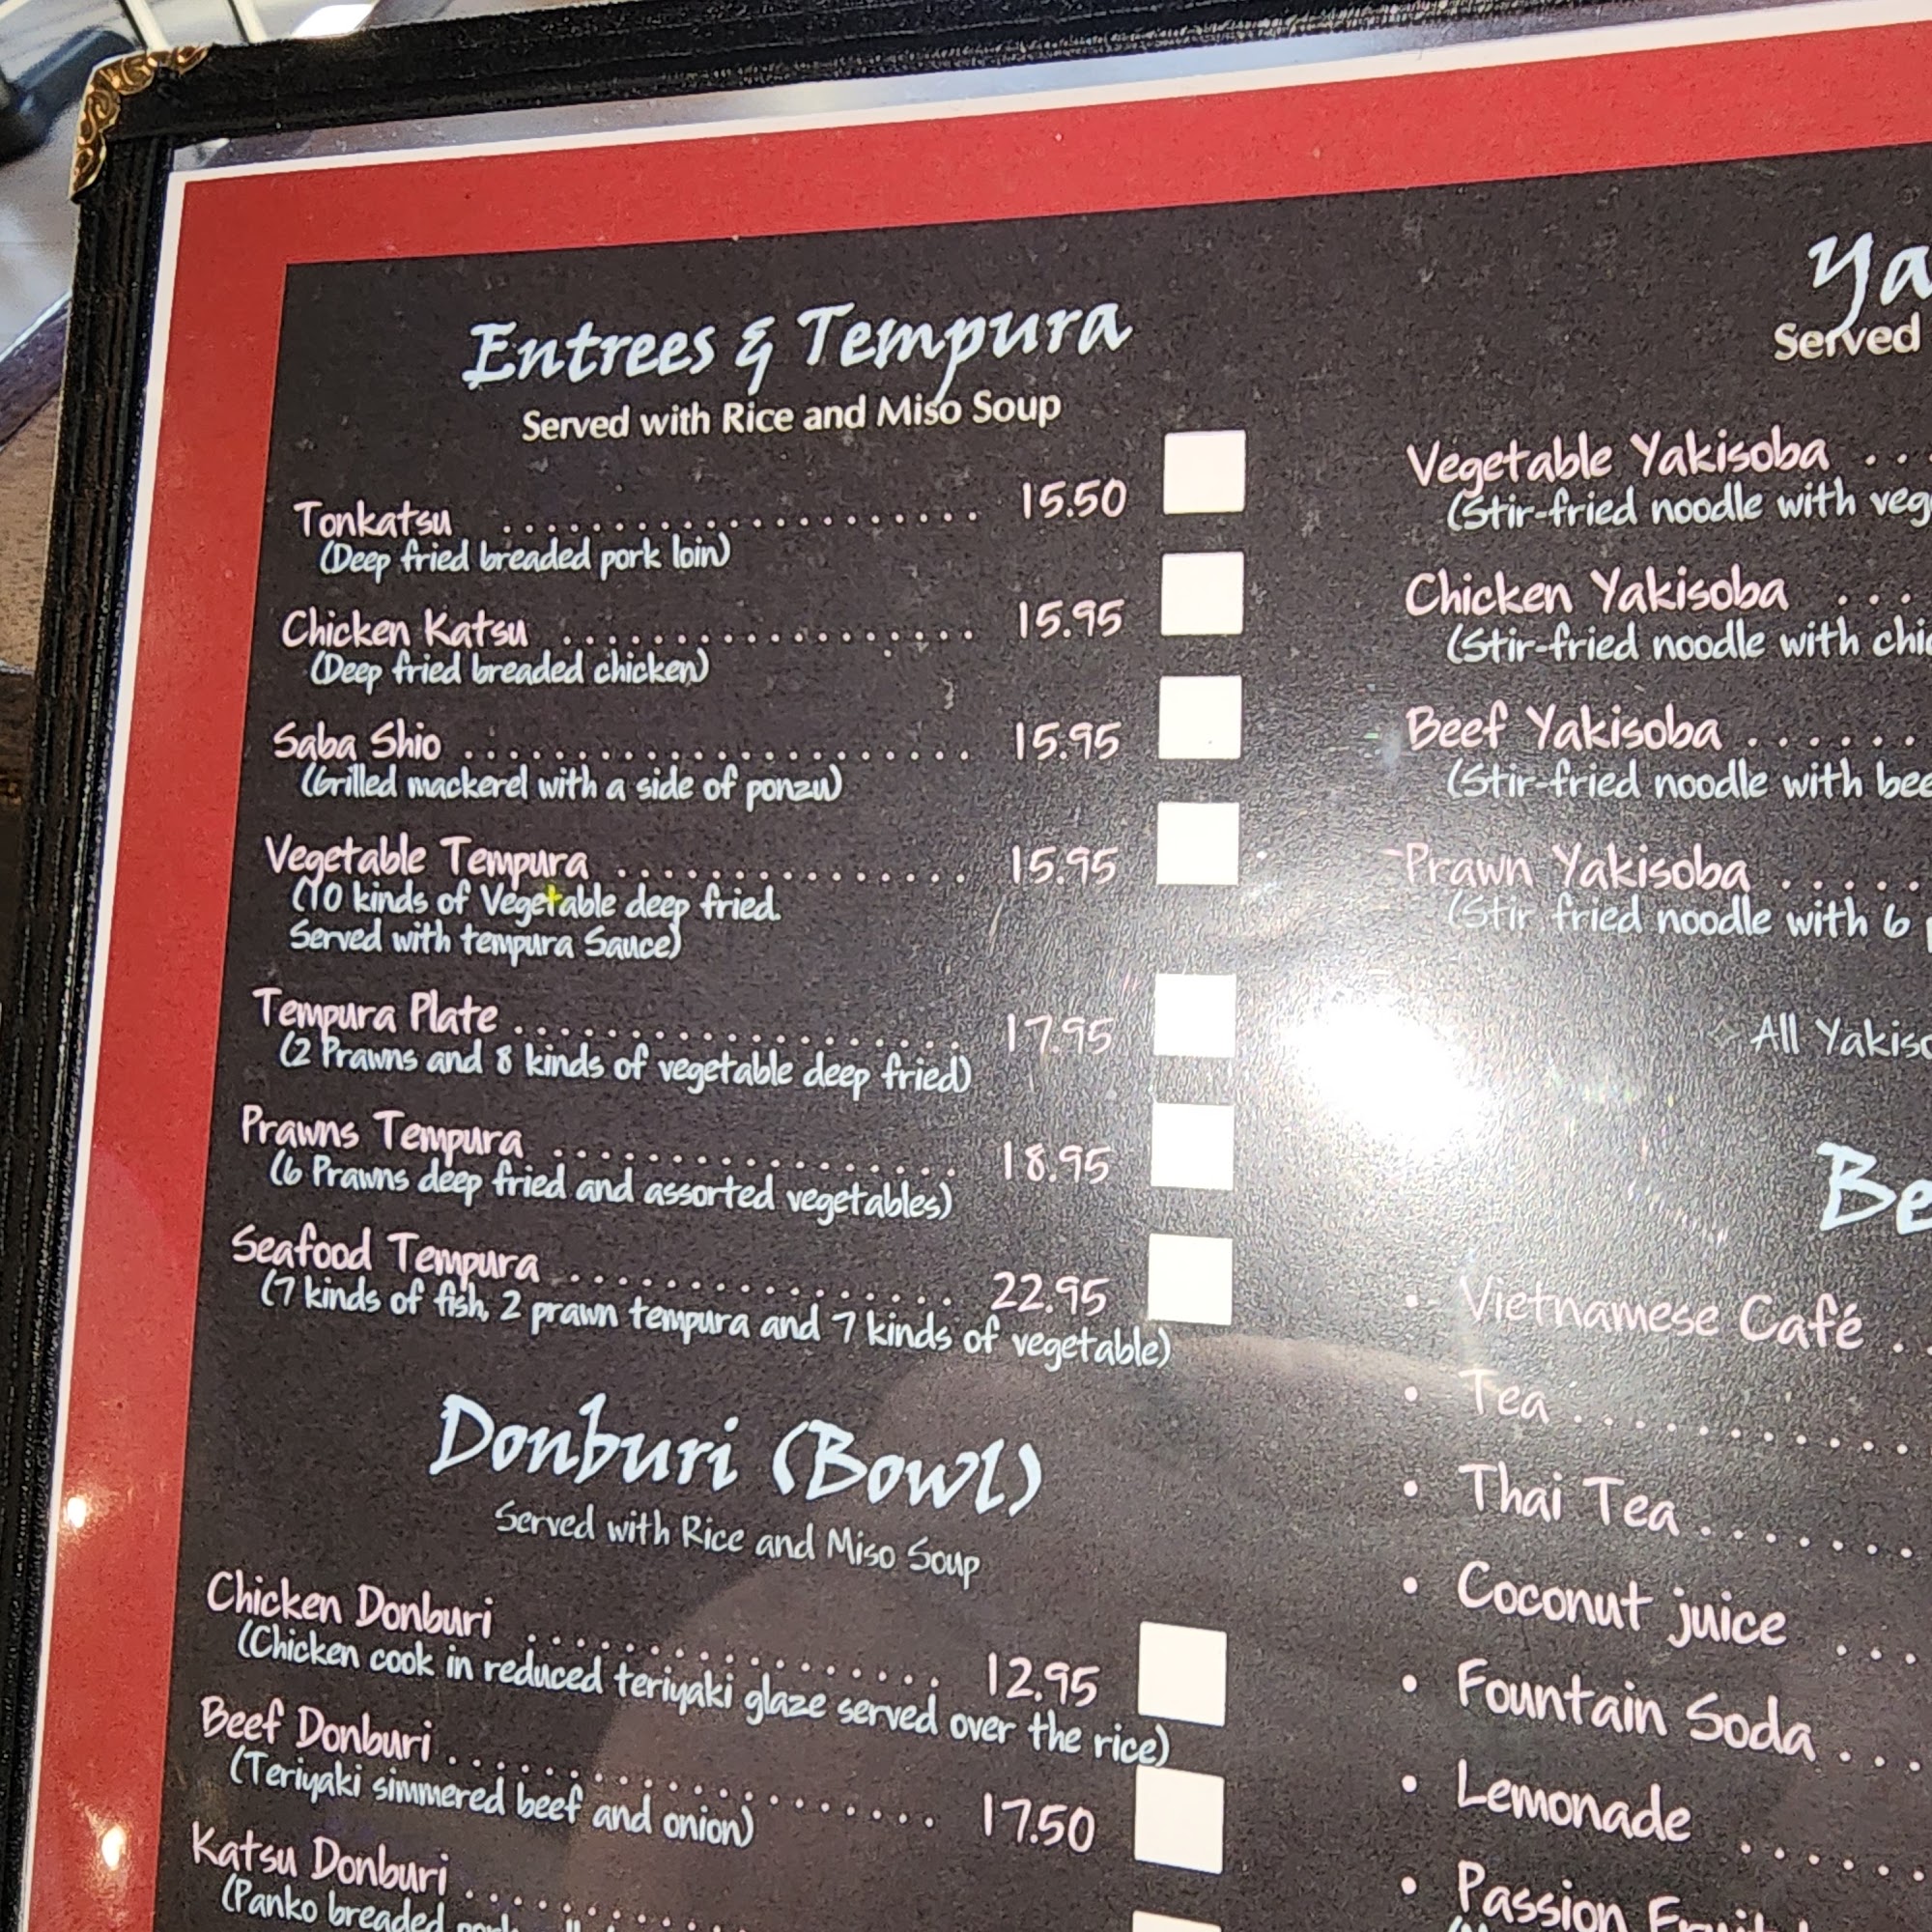 Entrees & Tempura
Served with Rice and Miso Soup
Tonkatsu .................... 15.50
(Deep fried breaded pork loin)
Chicken Katsu .................. 15.95
(Deep fried breaded chicken)
Saba Shio ...................... 15.95
(Grilled mackerel with a side of ponzu)
Vegetable Tempura ............... 15.95
(10 kinds of Vegetable deep fried.
Served with tempura Sauce)
Tempura Plate ................... 17.95
(2 Prawns and 8 kinds of vegetable deep fried)
Prawns Tempura ................. 18.95
(6 Prawns deep fried and assorted vegetables)
Seafood Tempura ................ 22.95
(7 kinds of fish, 2 prawn tempura and 7 kinds of vegetable)
Donburi (Bowl)
Served with Rice and Miso Soup
Chicken Donburi ................. 12.95
(Chicken cook in reduced teriyaki glaze served over the rice)
Beef Donburi .................... 17.50
(Teriyaki simmered beef and onion)
Katsu Donburi ..........
(Panko breaded
Ya
Served
Vegetable Yakisoba ...
(Stir-fried noodle with veg
Chicken Yakisoba ...
(Stir-fried noodle with chi
Beef Yakisoba ......
(Stir-fried noodle with bee
Prawn Yakisoba .....
(Stir fried noodle with 6
All Yakiso
Be
• Vietnamese Café ..
• Tea ............
• Thai Tea ........
• Coconut juice ...
• Fountain Soda ...
• Lemonade ......
• Passion